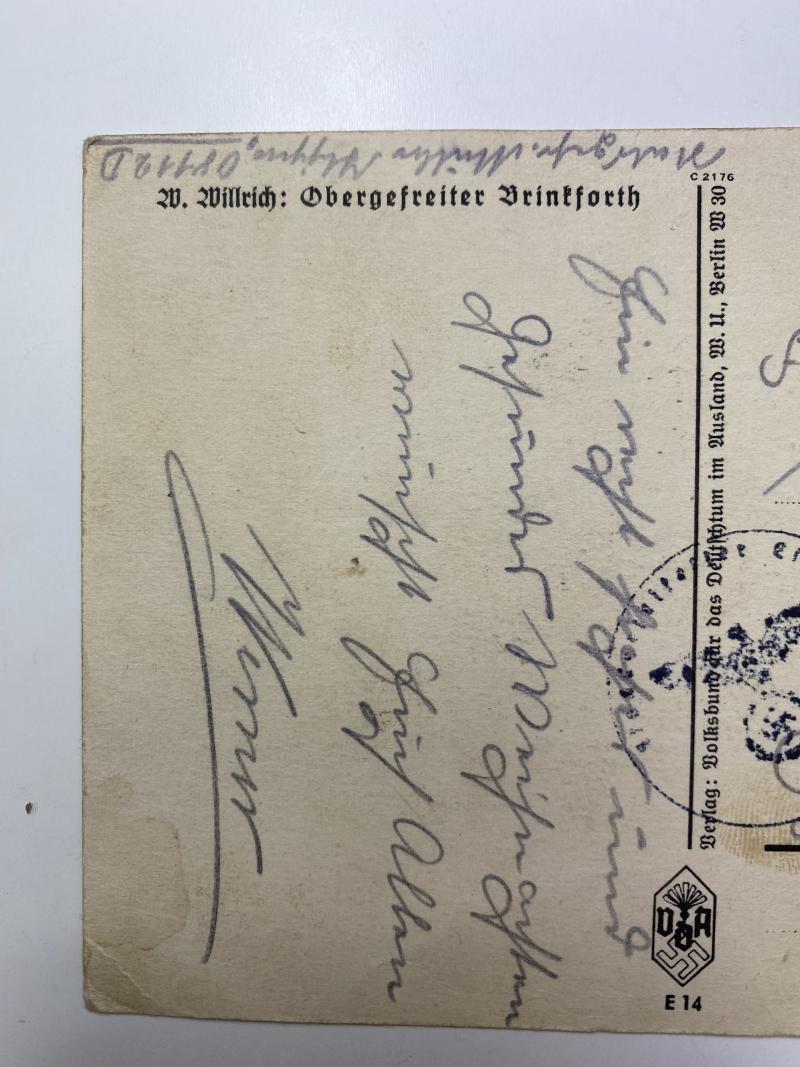 W. Willrich: Obergefreiter Brinkforth
C 2176
Ein recht frohes und
Gesundes Weihnachten
wünscht Euch Allen
Werner
Verlag: Volksbund für das Deutschtum im Ausland, W. U., Berlin W 30
VDA
E 14